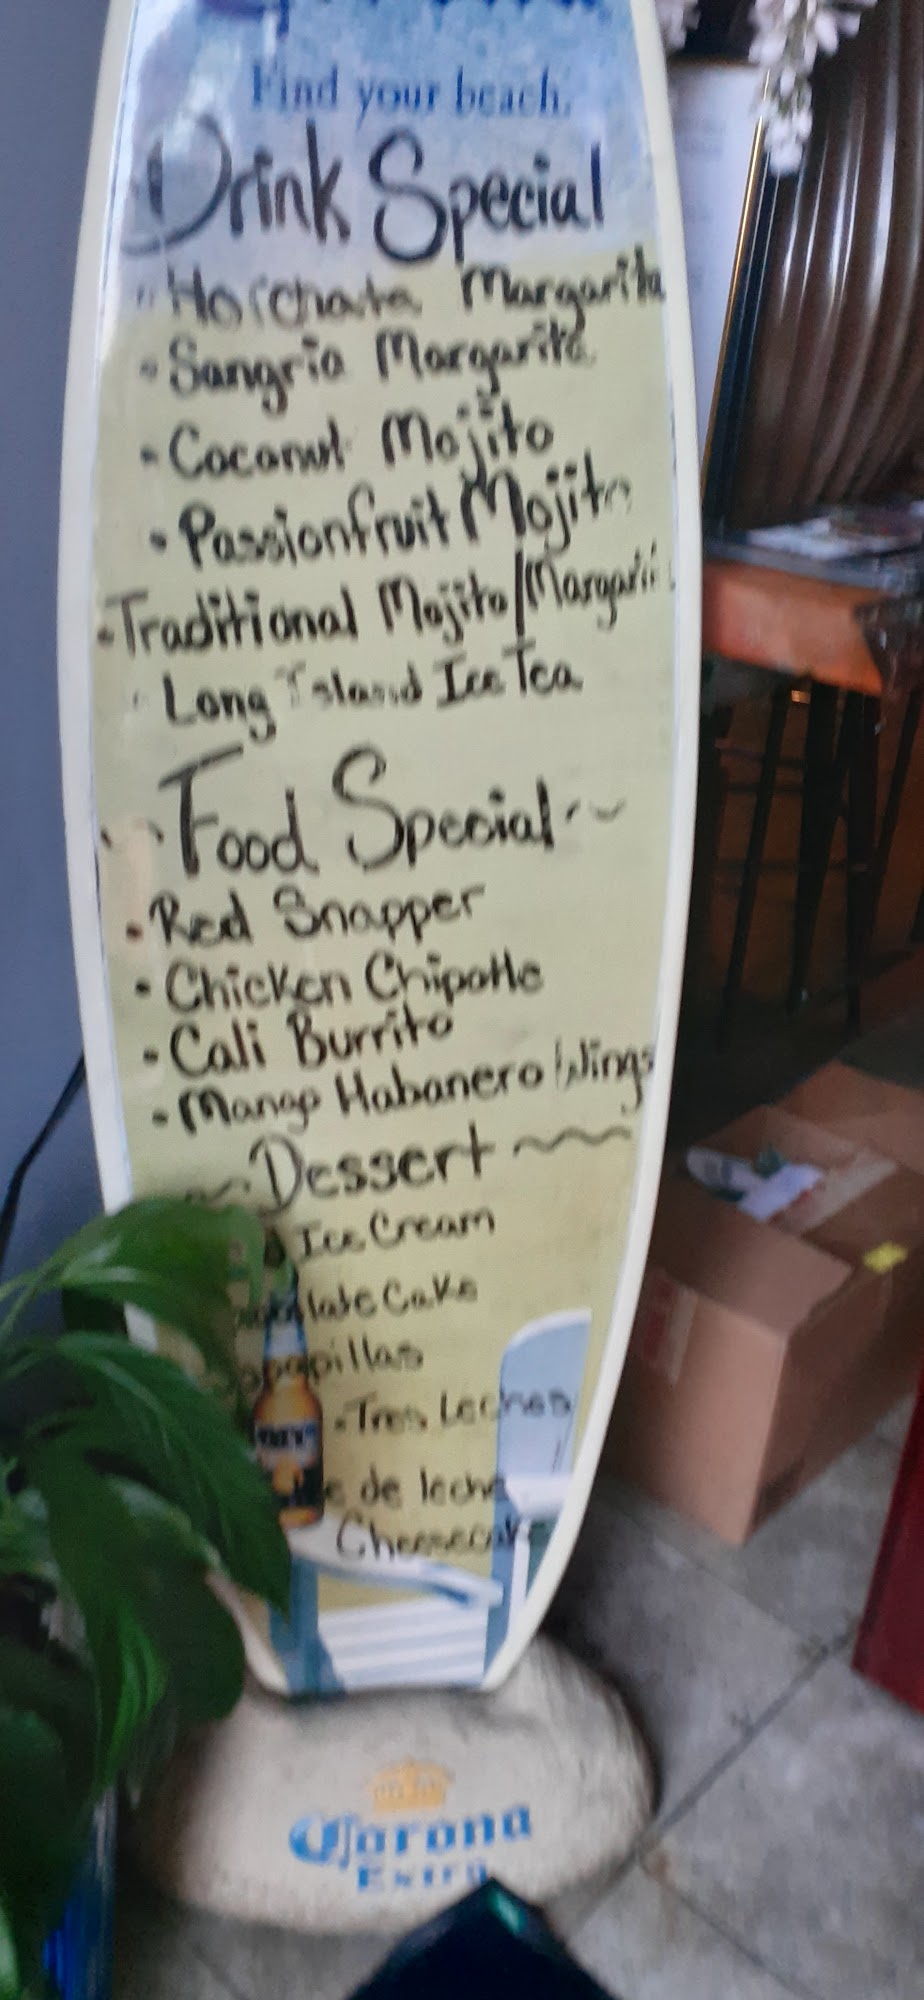 Find your beach.
Drink Special
- Horchata Margarita
- Sangria Margarita
- Coconut Mojito
- Passionfruit Mojito
- Traditional Mojito/Margari
- Long Island Ice Tea
Food Special
- Red Snapper
- Chicken Chipotle
- Cali Burrito
- Mango Habanero Wings
Dessert
Ice Cream
Cake
- Tres Leches
de leche
Cheesecake
Corona
Extra